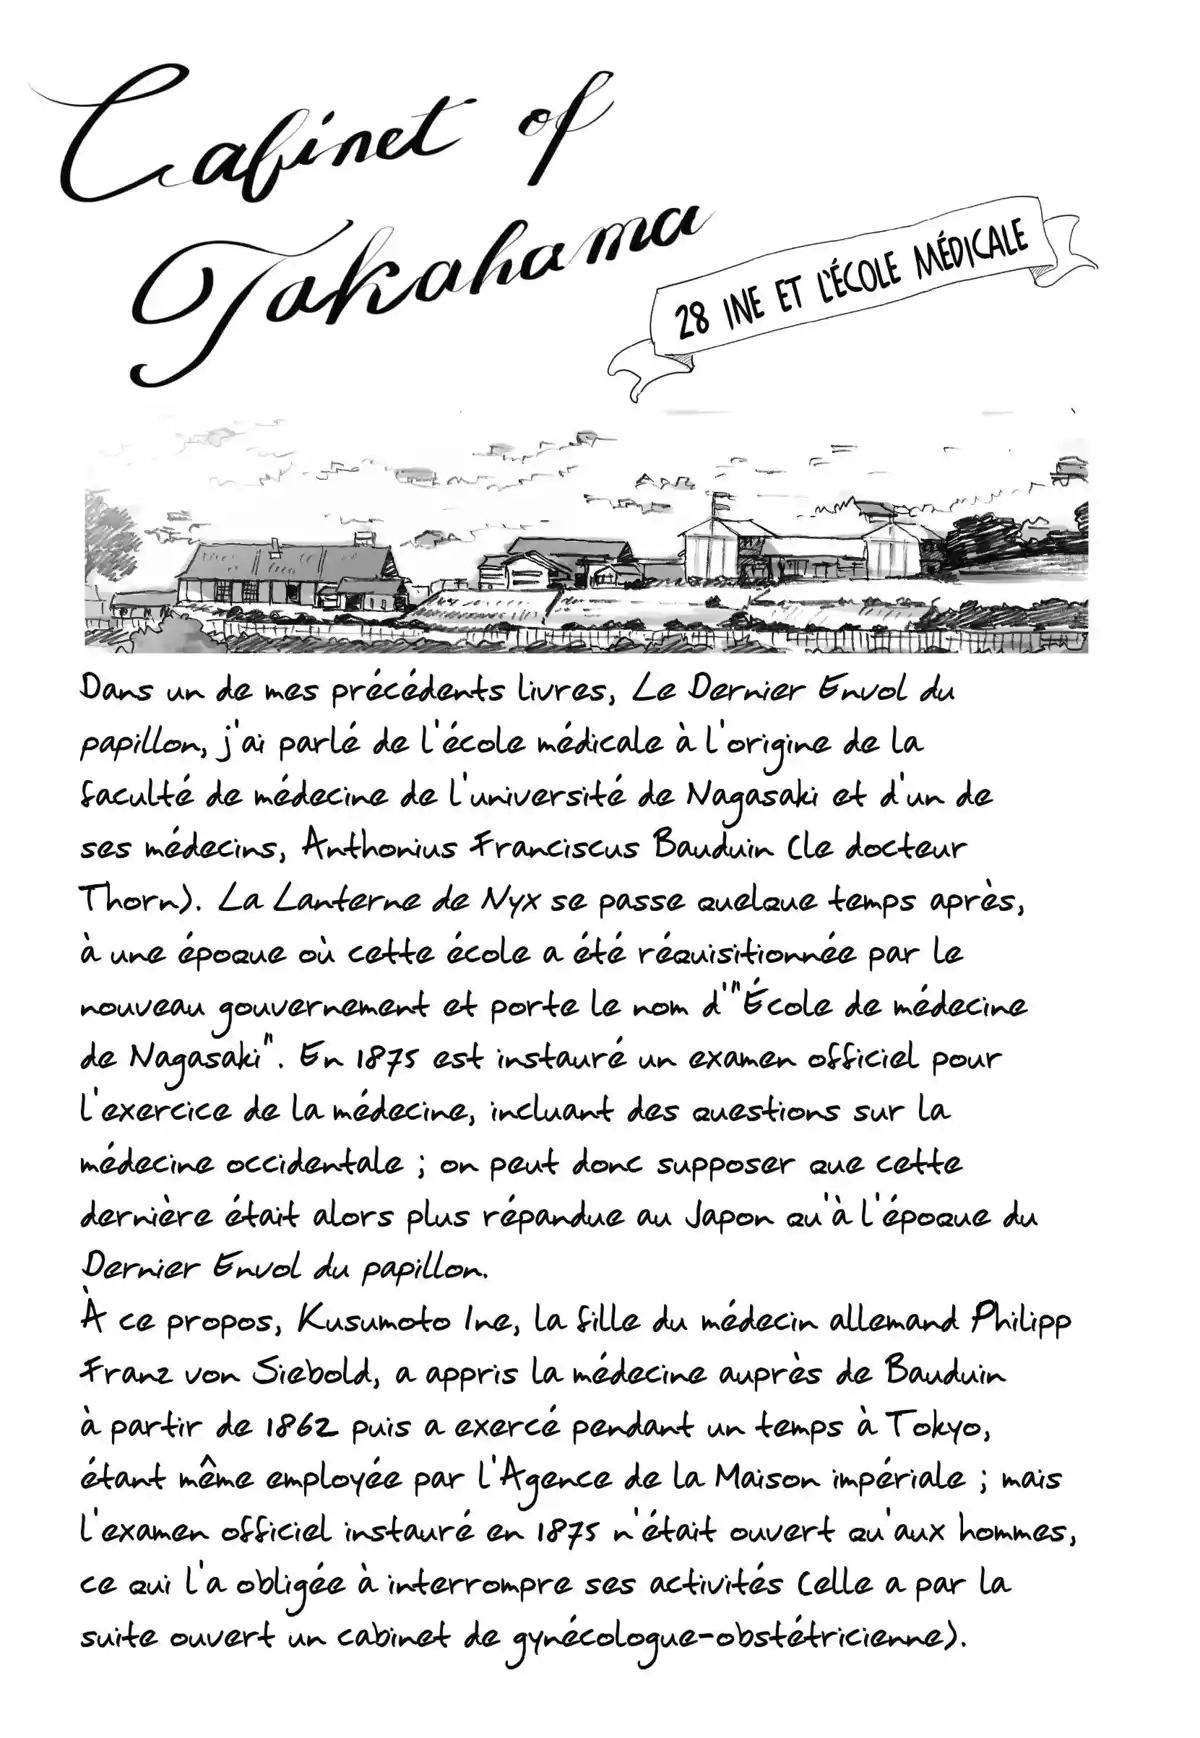 Cabinet of
Takahama
28 INE ET L'ÉCOLE MÉDICALE
Dans un de mes précédents livres, Le Dernier Envol du
papillon, j'ai parlé de l'école médicale à l'origine de la
faculté de médecine de l'université de Nagasaki et d'un de
ses médecins, Anthonius Franciscus Bauduin (le docteur
Thorn). La Lanterne de Nyx se passe quelque temps après,
à une époque où cette école a été réquisitionnée par le
nouveau gouvernement et porte le nom d'"École de médecine
de Nagasaki". En 1875 est instauré un examen officiel pour
l'exercice de la médecine, incluant des questions sur la
médecine occidentale ; on peut donc supposer que cette
dernière était alors plus répandue au Japon qu'à l'époque du
Dernier Envol du papillon.
À ce propos, Kusumoto Ine, la fille du médecin allemand Philipp
Franz von Siebold, a appris la médecine auprès de Bauduin
à partir de 1862 puis a exercé pendant un temps à Tokyo,
étant même employée par l'Agence de la Maison impériale ; mais
l'examen officiel instauré en 1875 n'était ouvert qu'aux hommes,
ce qui l'a obligée à interrompre ses activités (elle a par la
suite ouvert un cabinet de gynécologue-obstétricienne).